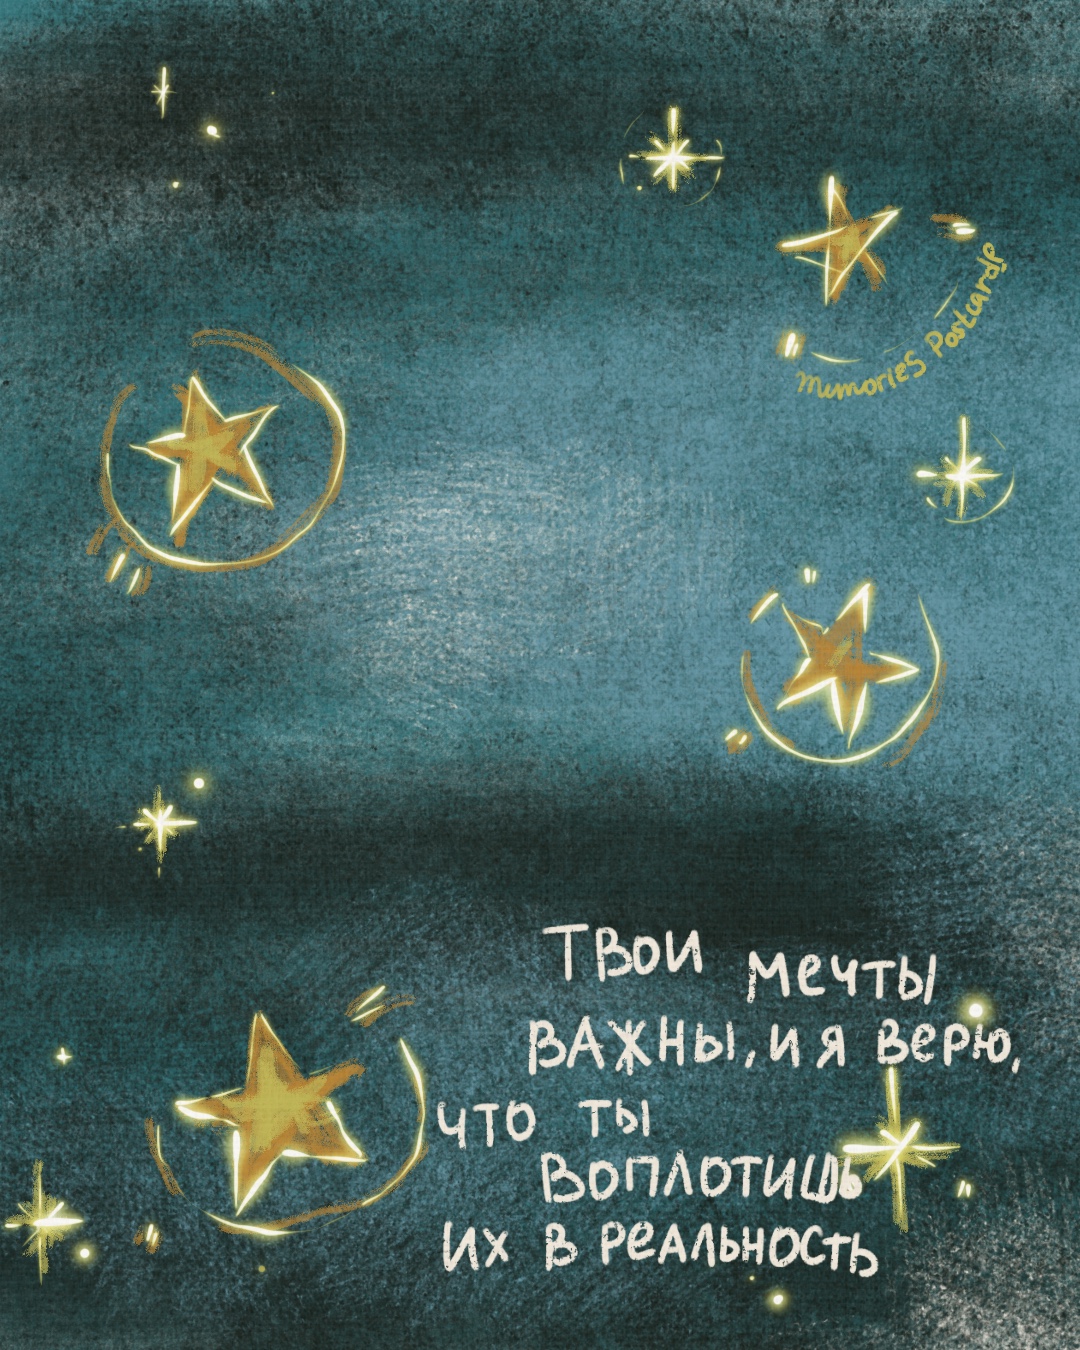 Memories Postcards
Твои мечты
важны, и я верю,
что ты
воплотишь
их в реальность